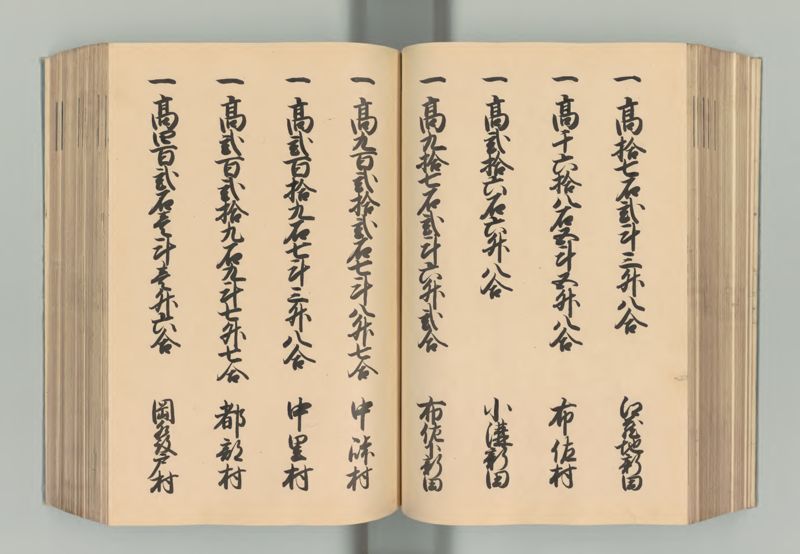 一 高拾七石弐斗三升八合 江蔵地新田
一 高千六拾八石五斗五升八合 布佐村
一 高弐拾六石六升八合 小溝新田
一 高九拾七石弐斗六升弐合 布佐下新田
一 高九百弐拾弐石七斗八升七合 中峠村
一 高弐百拾九石七斗三升八合 中里村
一 高弐百弐拾九石九斗七升七合 都部村
一 高四百弐石壱斗壱升六合 岡発戸村